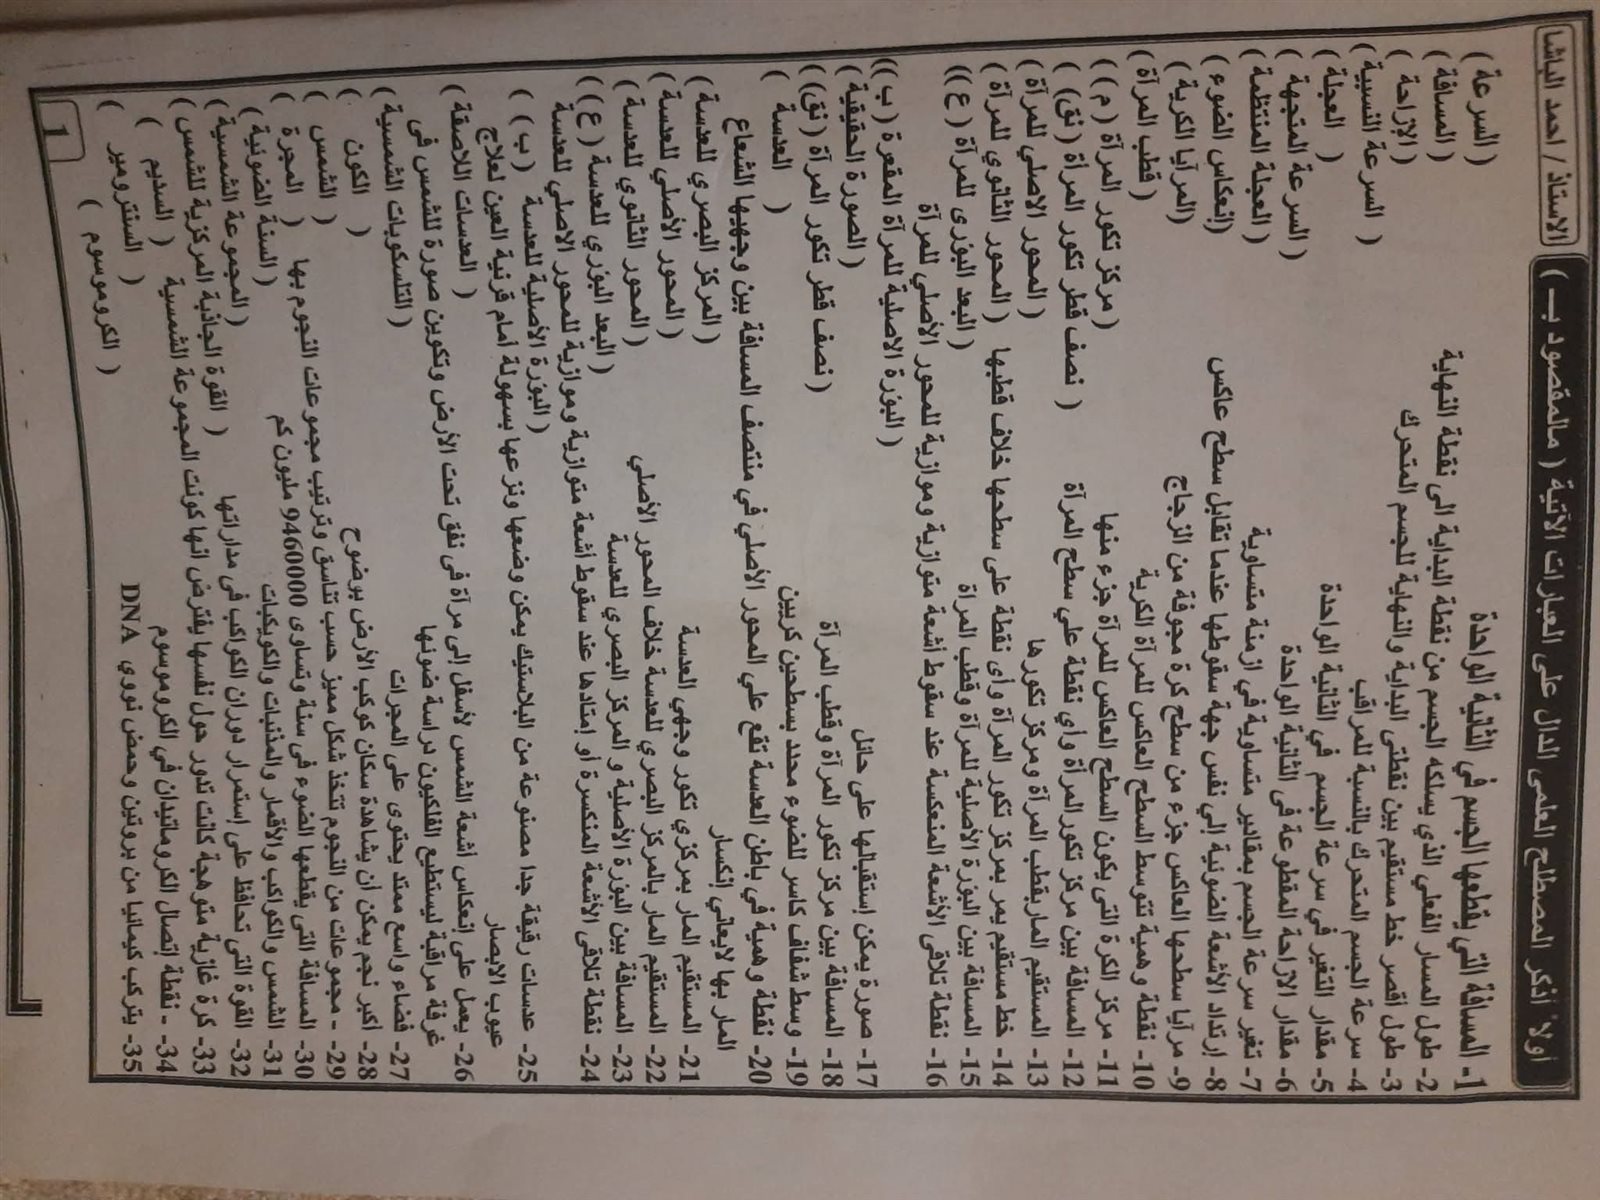 الاستاذ / احمد الباشا
أولا أذكر المصطلح العلمى الدال على العبارات الاتية ( مالمقصود بـ )
1- المسافة التي يقطعها الجسم في الثانية الواحدة ( السرعة )
2- طول المسار الفعلي الذي يسلكه الجسم من نقطة البداية الى نقطة النهاية ( المسافة )
3- طول أقصر خط مستقيم بين نقطتى البداية والنهاية للجسم المتحرك ( الإزاحة )
4- سرعة الجسم المتحرك بالنسبة للمراقب ( السرعة النسبية )
5- مقدار التغير في سرعة الجسم في الثانية الواحدة ( العجلة )
6- مقدار الازاحة المقطوعة فى الثانية الواحدة ( السرعة المتجهة )
7- تغير سرعة الجسم بمقادير متساوية في ازمنة متساوية ( العجلة المنتظمة )
8- إرتداد الأشعة الضوئية إلي نفس جهة سقوطها عندما تقابل سطح عاكس (إنعكاس الضوء )
9- مرآيا سطحها العاكس جزء من سطح كرة مجوفة من الزجاج (المرآيا الكرية )
10- نقطة وهمية تتوسط السطح العاكس للمرآة الكرية ( قطب المرآة )
11- مركز الكرة التى يكون السطح العاكس للمرآة جزء منها ( مركز تكور المرآة ( م ) )
12- المسافة بين مركز تكور المرآة وأي نقطة علي سطح المرآة ( نصف قطر تكور المرآة ( نق) )
13- المستقيم الماربقطب المرآة ومركز تكورها ( المحور الاصلي للمرآة )
14- خط مستقيم يمر بمركز تكور المرآة وأى نقطة على سطحها خلاف قطبها ( المحور الثانوي للمرآة )
15- المسافة بين البؤرة الأصلية للمرآة وقطب المرآة ( البعد البؤرى للمرآة ( ع ))
16- نقطة تلاقى الأشعة المنعكسة عند سقوط أشعة متوازية وموازية للمحور الأصلي للمرآة
( البؤرة الاصلية للمرآة المقعرة ( ب ))
17- صورة يمكن إستقبالها على حائل ( الصورة الحقيقية )
18- المسافة بين مركز تكور المرآة وقطب المرآة ( نصف قطر تكور المرآة ( نق))
19- وسط شفاف كاسر للضوء محدد بسطحين كريين ( العدسة )
20- نقطة وهمية في باطن العدسة تقع علي المحور الأصلي في منتصف المسافة بين وجهيها الشعاع
المار بها لايعاني إنكسار ( المركز البصري للعدسة )
21- المستقيم المار بمركزي تكور وجهي العدسة ( المحور الأصلي للعدسة )
22- المستقيم المار بالمركز البصري للعدسة خلاف المحور الأصلي ( المحور الثانوي للعدسة )
23- المسافة بين البؤرة الأصلية و المركز البصري للعدسة ( البعد البؤري للعدسة ( ع ))
24- نقطة تلاقى الأشعة المنكسرة أو إمتادها عند سقوط أشعة متوازية وموازية للمحور الاصلي للعدسة
( البؤرة الأصلية للعدسة ( ب ) )
25- عدسات رقيقة جدا مصنوعة من البلاستيك يمكن وضعها ونزعها بسهولة أمام قرنية العين لعلاج
عيوب الابصار ( العدسات اللاصقة )
26- يعمل على إنعكاس أشعة الشمس لأسفل إلى مرآة فى نفق تحت الأرض وتكوين صورة للشمس فى
غرفة مراقبة ليستطيع الفلكيون دراسة ضوئها ( التلسكوبات الشمسية )
27- فضاء واسع ممتد يحتوى على المجرات ( الكون )
28- أكبر نجم يمكن أن يشاهدة سكان كوكب الأرض بوضوح ( الشمس )
29- مجموعات من النجوم تتخذ شكل مميز حسب تناسق وترتيب مجموعات النجوم بها ( المجرة )
30- المسافة التى يقطعها الضوء فى سنة وتساوى 9460000 مليون كم (السنة الضوئية )
31- الشمس والكواكب والأقمار والمذنبات والكويكبات (المجموعة الشمسية )
32- القوة التى تحافظ على إستمرار دوران الكواكب فى مداراتها ( القوة الجاذبة المركزية للشمس )
33- كرة غازية متوهجة كانت تدور حول نفسها يفترض انها كونت المجموعة الشمسية ( السديم )
34- نقطة إتصال الكروماتيدان في الكروموسوم ( السنترومير )
35- يتركب كيمائيا من بروتين وحمض نووي DNA ( الكروموسوم )
1